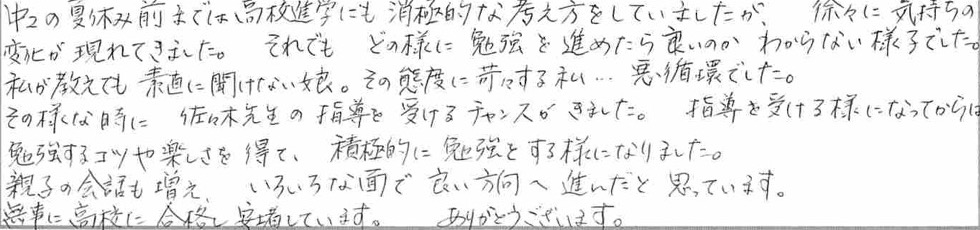 中2の夏休み前までは、高校進学にも 消極的な 考え方をしていましたが、 徐々に 気持ちの
変化が 現れてきました。 それでも どの様に 勉強を 進めたら 良いのか わからない 様子でした。
私が教えても 素直に聞けない娘。その態度に 苛々する私… 悪循環でした。
その様な時に 佐々木先生の 指導を 受ける チャンスが きました。 指導を受ける様になってからは
勉強するコツや楽しさを 得て、 積極的に 勉強をする様になりました。
親子の会話も 増え、 いろいろな面で 良い方向へ 進んだと 思っています。
無事に 高校に 合格し 安堵しています。 ありがとうございます。